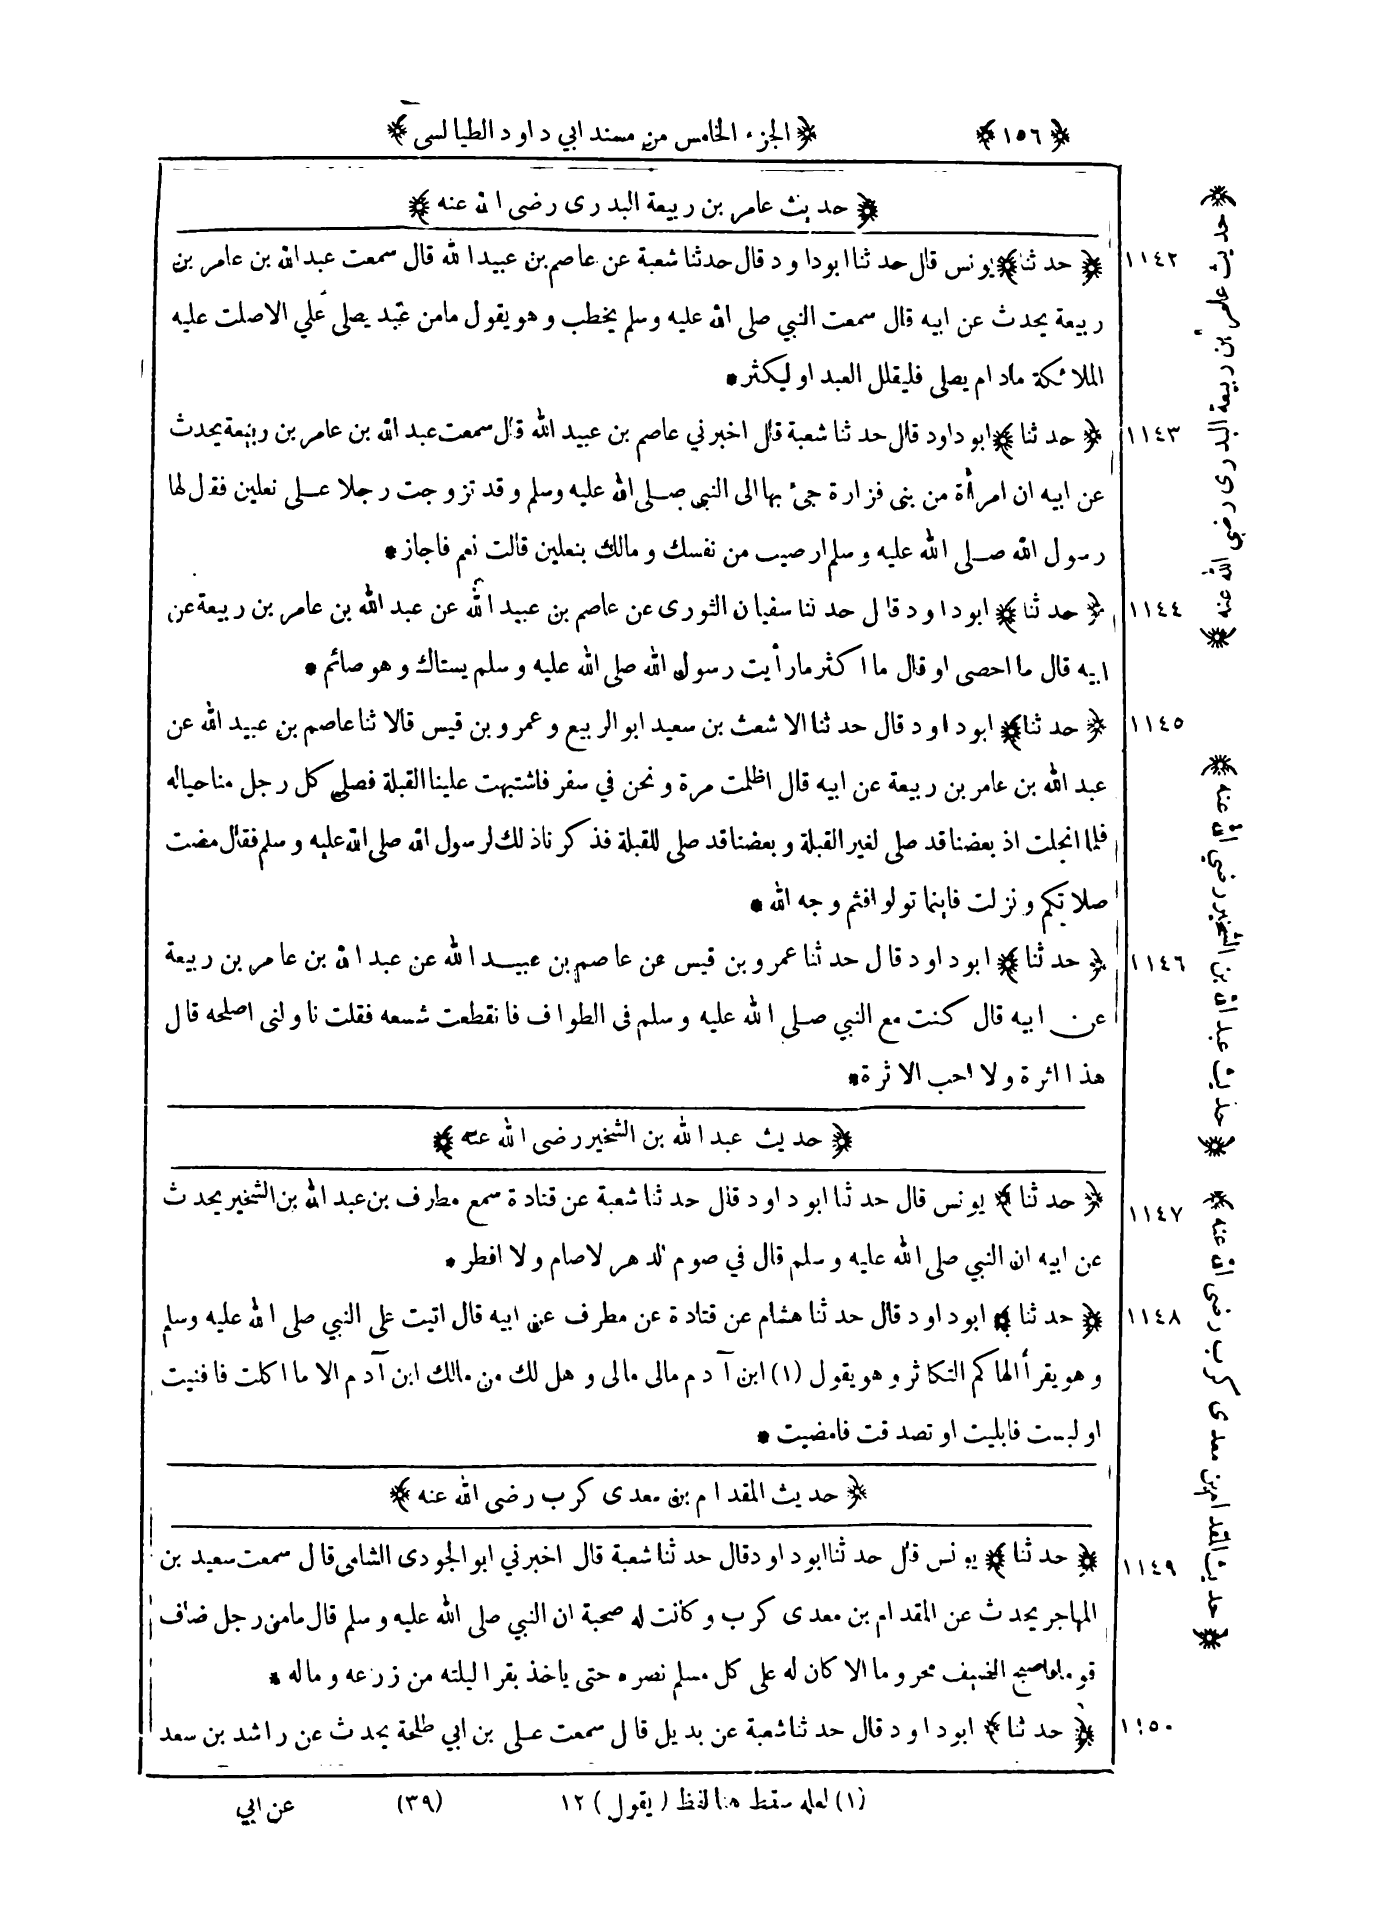 ﴿١٥٦﴾ ﴿الجزء الخامس من مسند ابي داود الطيالسى﴾
﴿حديث عامر بن ربيعة البدرى رضى الله عنه﴾
١١٤٢ ﴿حدثنا﴾ يونس قال حدثنا ابوداود قال حدثنا شعبة عن عاصم بن عبيد الله قال سمعت عبدالله بن عامر بن
ربيعة يحدث عن ابيه قال سمعت النبي صلى الله عليه وسلم يخطب وهو يقول مامن عبد يصلى علي الاصلت عليه
الملائكة مادام يصلى فليقلل العبد او ليكثر *
١١٤٣ ﴿حدثنا﴾ ابوداود قال حدثنا شعبة قال اخبرني عاصم بن عبيد الله قال سمعت عبد الله بن عامر بن ربيعة يحدث
عن ابيه ان امرأة من بنى فزارة جيء بها الى النبي صلى الله عليه وسلم وقد تزوجت رجلا على نعلين فقال لها
رسول الله صلى الله عليه وسلم ارضيت من نفسك ومالك بنعلين قالت نعم فاجاز *
١١٤٤ ﴿حدثنا﴾ ابوداود قال حدثنا سفيان الثورى عن عاصم بن عبيد الله عن عبد الله بن عامر بن ربيعة عن
ابيه قال ما احصى او قال ما اكثر مارأيت رسول الله صلى الله عليه وسلم يستاك وهو صائم *
١١٤٥ ﴿حدثنا﴾ ابوداود قال حدثنا الاشعث بن سعيد ابو الربيع وعمرو بن قيس قالا ثنا عاصم بن عبيد الله عن
عبد الله بن عامر بن ربيعة عن ابيه قال اظلمت مرة ونحن في سفر فاشتبهت علينا القبلة فصلى كل رجل منا حياله
فلما انجلت اذ بعضنا قد صلى لغير القبلة وبعضنا قد صلى للقبلة فذكرنا ذلك لرسول الله صلى الله عليه وسلم فقال مضت
صلاتكم ونزلت فاينما تولوا فثم وجه الله *
١١٤٦ ﴿حدثنا﴾ ابوداود قال حدثنا عمرو بن قيس عن عاصم بن عبيد الله عن عبد الله بن عامر بن ربيعة
عن ابيه قال كنت مع النبي صلى الله عليه وسلم فى الطواف فانقطعت شسعه فقلت ناولنى اصلحه قال
هذا اثرة ولا احب الاثرة *
﴿حديث عبد الله بن الشخير رضى الله عنه﴾
١١٤٧ ﴿حدثنا﴾ يونس قال حدثنا ابوداود قال حدثنا شعبة عن قتادة سمع مطرف بن عبد الله بن الشخير يحدث
عن ابيه ان النبي صلى الله عليه وسلم قال في صوم الدهر لا صام ولا افطر *
١١٤٨ ﴿حدثنا﴾ ابوداود قال حدثنا هشام عن قتادة عن مطرف عن ابيه قال اتيت على النبي صلى الله عليه وسلم
وهو يقرأ الهاكم التكاثر وهو يقول (١) ابن آدم مالى مالى وهل لك من مالك ابن آدم الا ما اكلت فافنيت
او لبست فابليت او تصدقت فامضيت *
﴿حديث المقدام بن معدى كرب رضى الله عنه﴾
١١٤٩ ﴿حدثنا﴾ يونس قال حدثنا ابوداود قال حدثنا شعبة قال اخبرني ابو الجودى الشامى قال سمعت سعيد بن
المهاجر يحدث عن المقدام بن معدى كرب وكانت له صحبة ان النبي صلى الله عليه وسلم قال مامن رجل ضاف
قوما فاصبح الضيف محروما الا كان له على كل مسلم نصره حتى ياخذ بقرا ليلته من زرعه وماله *
١١٥٠ ﴿حدثنا﴾ ابوداود قال حدثنا شعبة عن بديل قال سمعت على بن ابي طلحة يحدث عن راشد بن سعد
(١) لعله سقط هنا لفظ (يقول) ١٢ (٣٩) عن ابي
﴿حديث عامر بن ربيعة البدرى رضى الله عنه﴾
﴿حديث عبد الله بن الشخير رضي الله عنه﴾
﴿حديث المقدام بن معدى كرب رضى الله عنه﴾